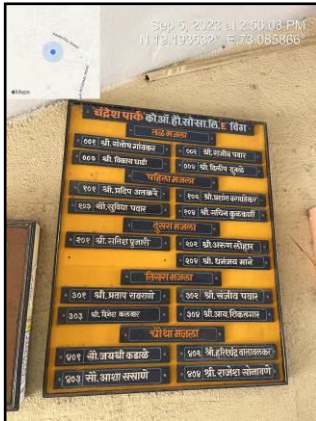 Sep 5, 2023 at 2:56:03 PM
N 19.193532° E 73.085866°
Maps
चंद्रेश पार्क को.ऑ.हौ.सोसा.लि. E विंग
तळ मजला
००१ श्री. संतोष गांवकर ००२ श्री. राजीव पवार
००३ श्री. विकास घाडी ००४ श्री. दिलीप दुबळे
पहिला मजला
१०१ श्री. प्रदिप अलकरे १०२ श्री. प्रशांत
१०३ श्री. सुविधा पवार १०४ श्री. सचिन कुळकर्णी
दुसरा मजला
२०१ श्री. सतिश पुजारी २०२ श्री. अरूण लोहार
२०४ श्री. धनंजय माने
तिसरा मजला
३०१ श्री. प्रताप रावराणे ३०२ श्री. संजीव पवार
३०३ श्री. दिनेश कलवार ३०४ श्री. आय. शिकलगार
चौथा मजला
४०१ सौ. जयश्री कडाळे ४०२ श्री. हरिश्चंद्र वालावलकर
४०३ सौ. आशा ससाणे ४०४ श्री. राजेश सोनावणे